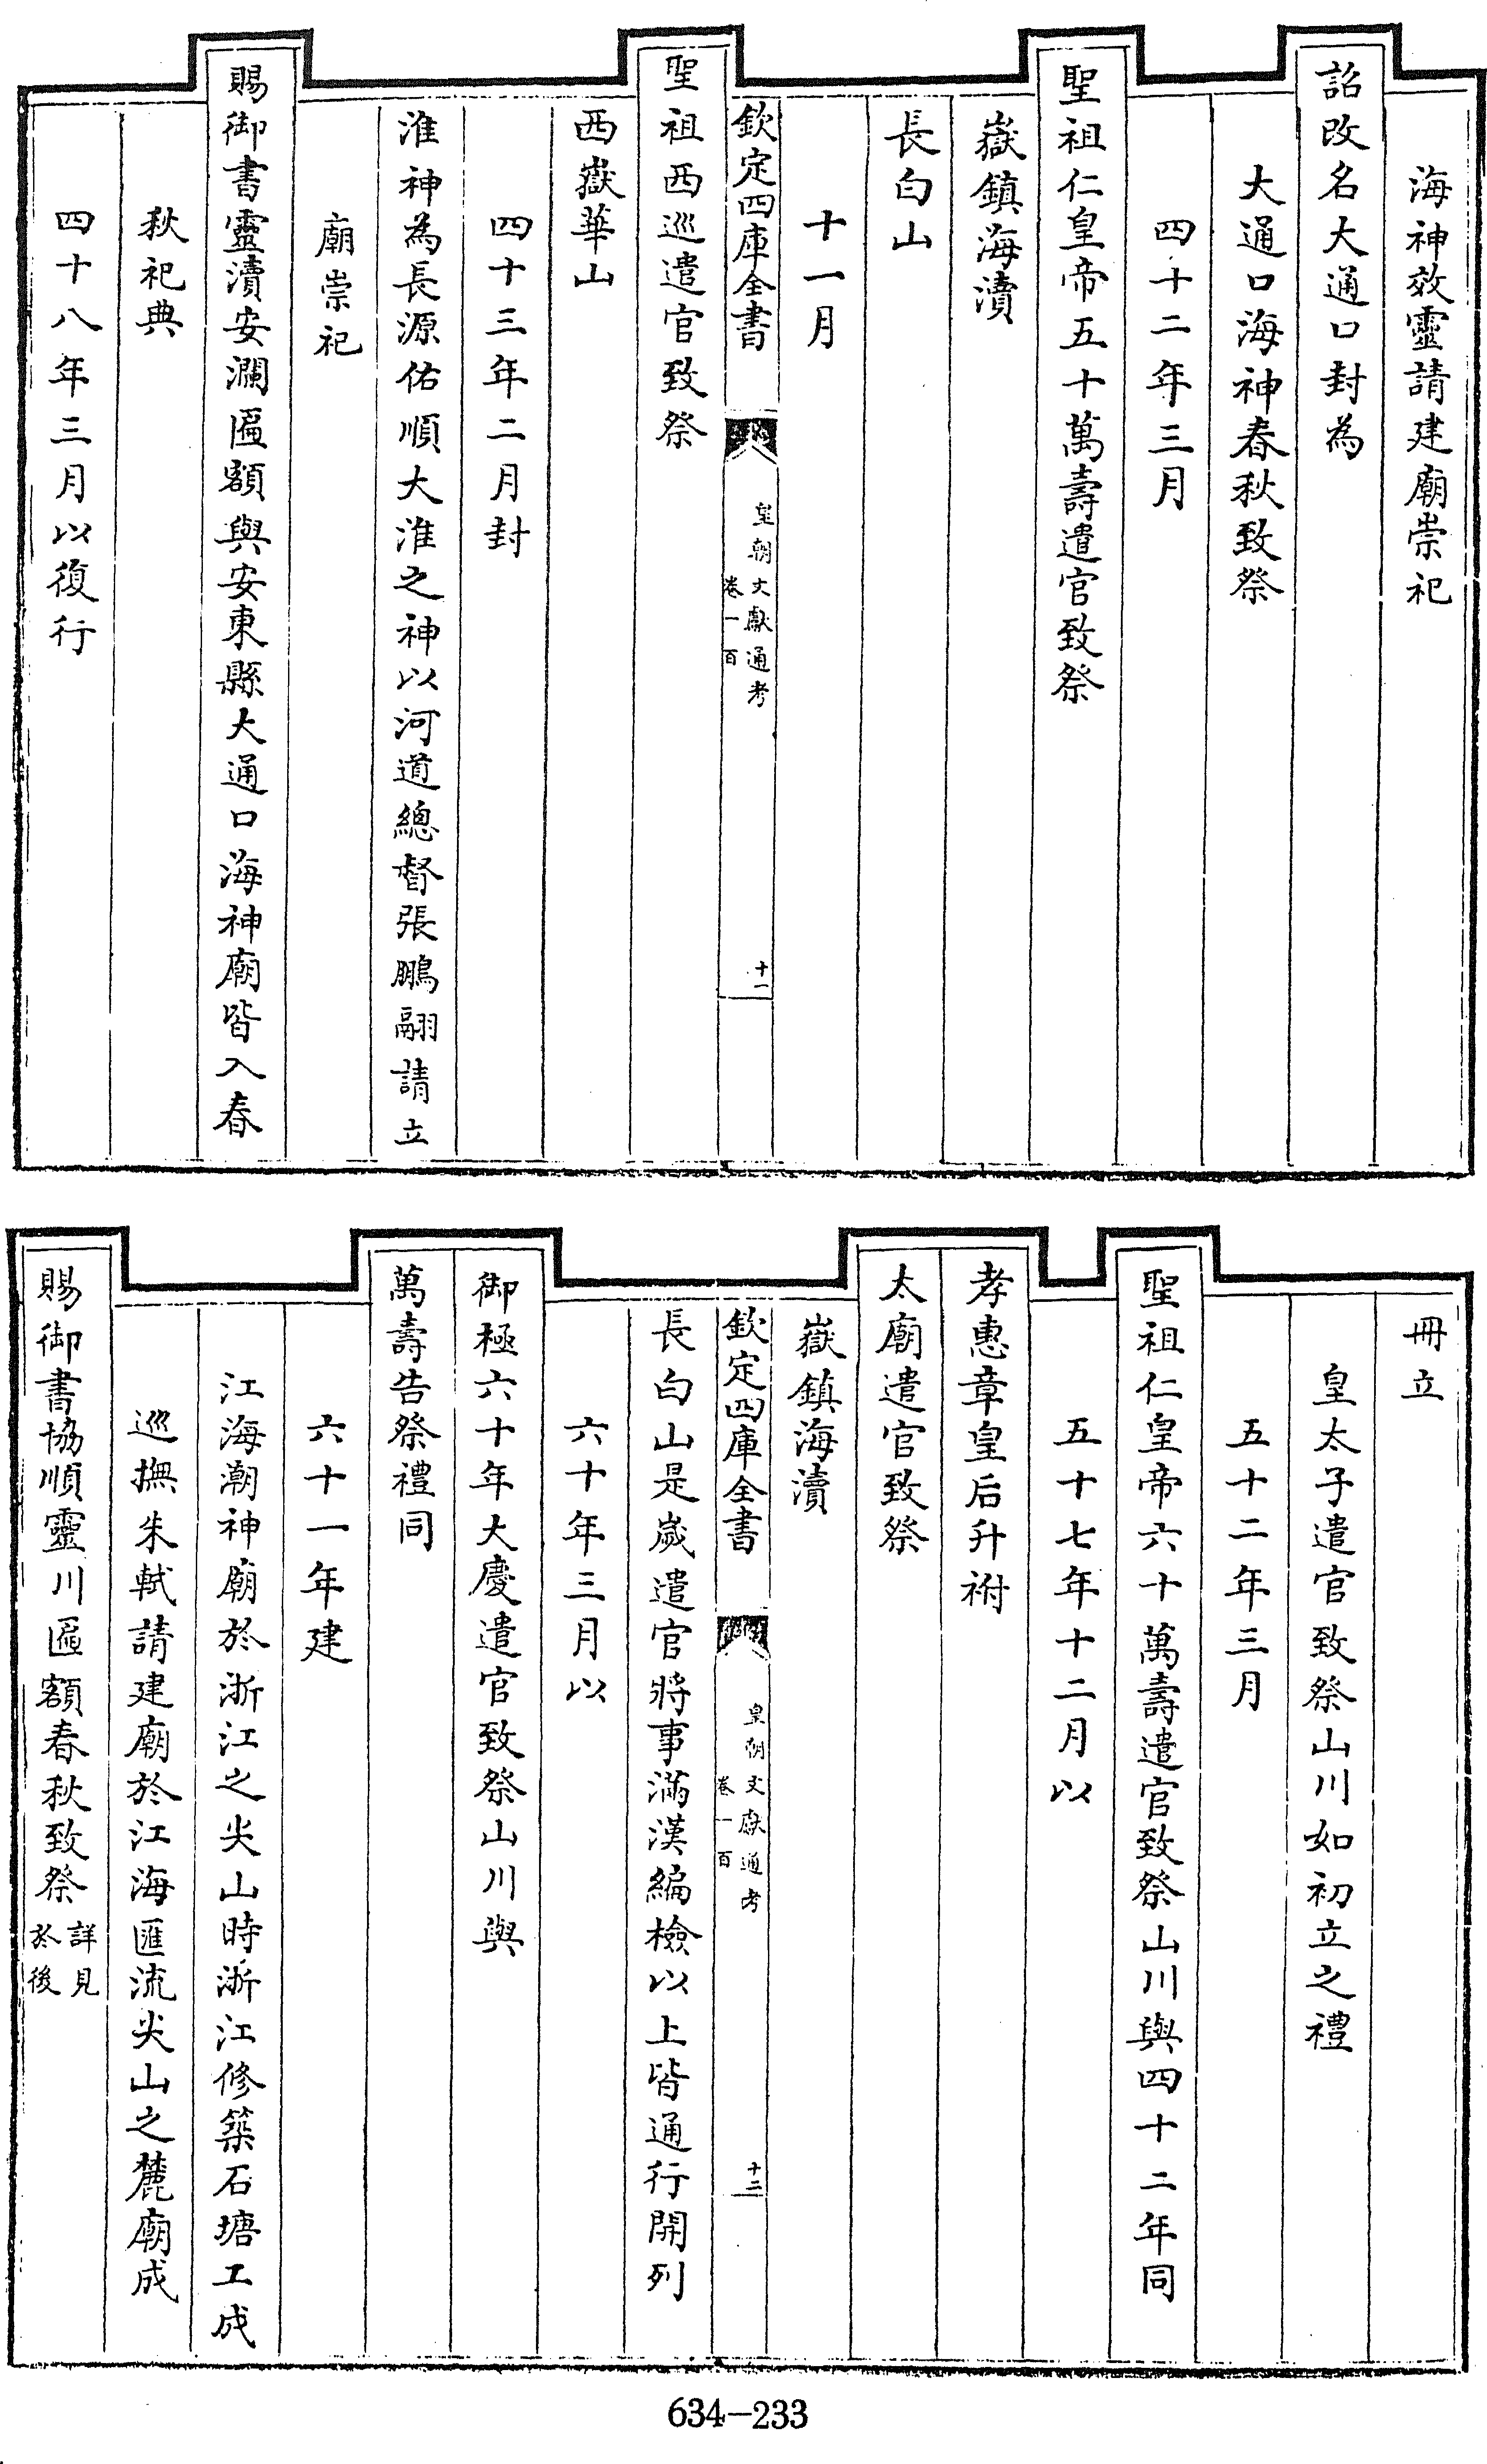 海神效靈請建廟崇祀
詔改名大通口封為
大通口海神春秋致祭
四十二年三月
聖祖仁皇帝五十萬壽遣官致祭
嶽鎮海瀆
長白山
十一月
欽定四庫全書
皇朝文獻通考
卷一百
十一
聖祖西巡遣官致祭
西嶽華山
四十三年二月封
淮神為長源佑順大淮之神以河道總督張鵬翮請立
廟崇祀
賜御書靈瀆安瀾匾額與安東縣大通口海神廟皆入春
秋祀典
四十八年三月以復行
冊立
皇太子遣官致祭山川如初立之禮
五十二年三月
聖祖仁皇帝六十萬壽遣官致祭山川與四十二年同
五十七年十二月以
孝惠章皇后升祔
太廟遣官致祭
嶽鎮海瀆
欽定四庫全書
皇朝文獻通考
卷一百
十二
長白山是歲遣官將事滿漢編檢以上皆通行開列
六十年三月以
御極六十年大慶遣官致祭山川與
萬壽告祭禮同
六十一年建
江海潮神廟於浙江之尖山時浙江修築石塘工成
巡撫朱軾請建廟於江海匯流尖山之麓廟成
賜御書協順靈川匾額春秋致祭詳見於後
634-233